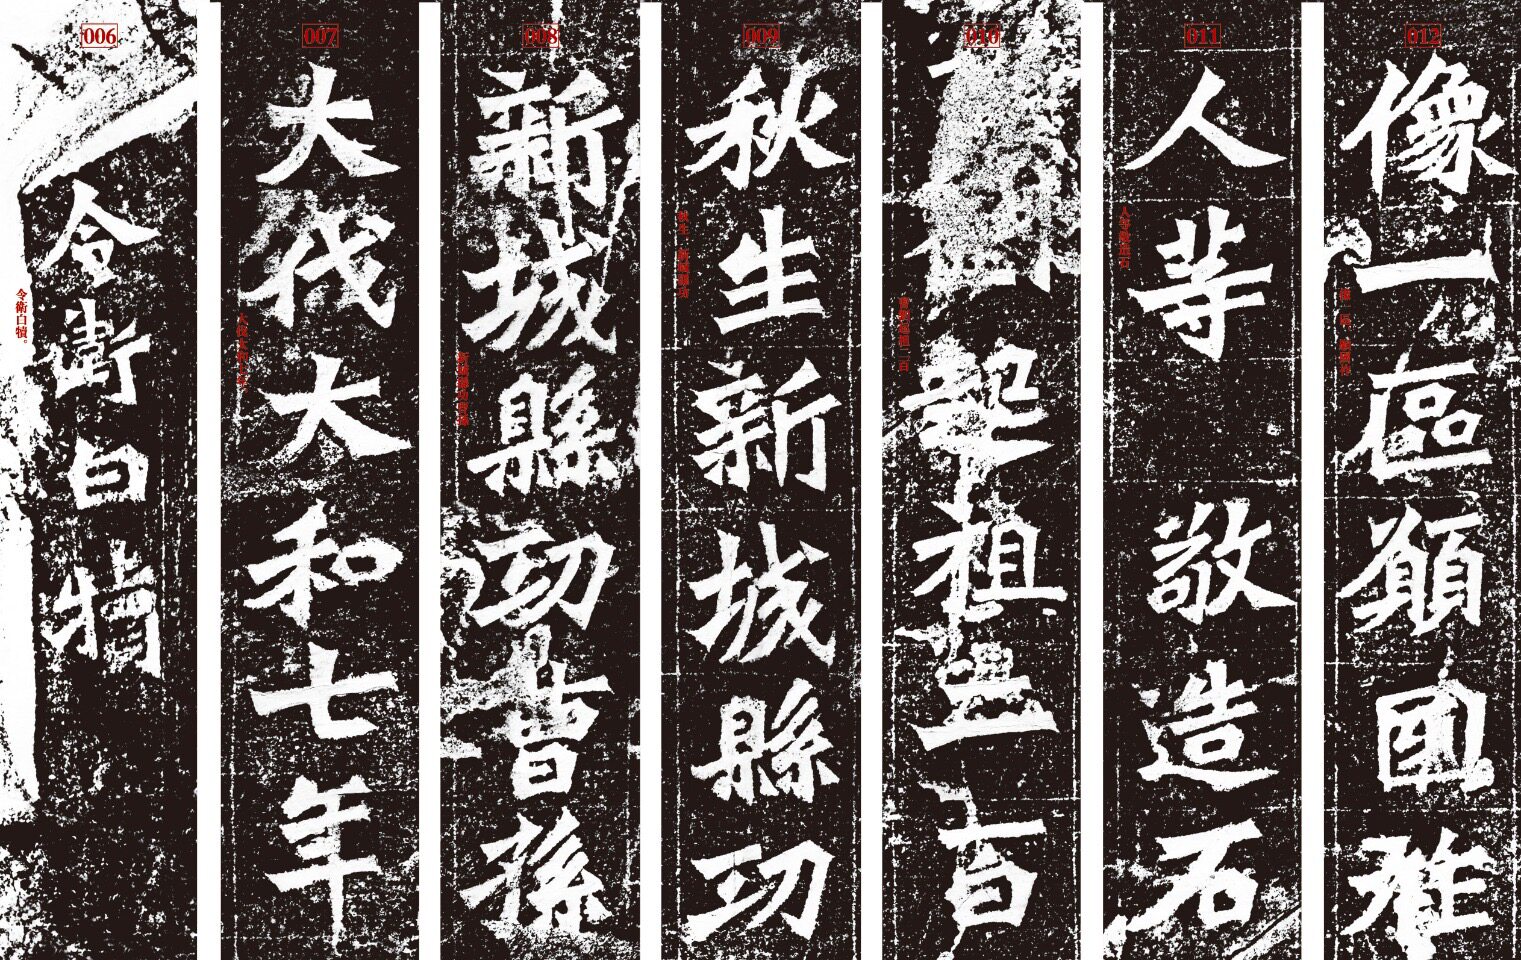 006
令衛白犢
令衛白犢。
007
大代大和七年
大代太和七年，
008
新城縣功曹孫
新城縣功曹孫
009
秋生新城縣功
秋生、新城縣功
010
起祖二百
曹劉起祖二百
011
人等敬造石
人等敬造石
012
像一區願國祚
像一區，願國祚